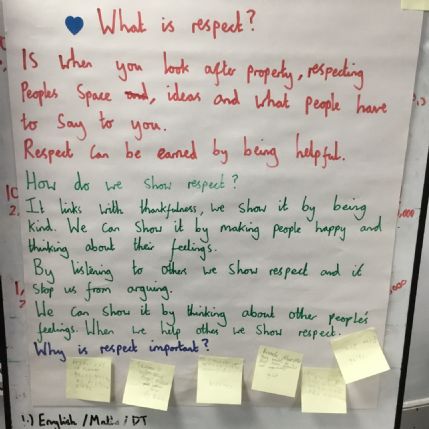 What is respect?
Is when you look after property, respecting
Peoples Space and, ideas and what people have
to Say to you.
Respect can be earned by being helpful.
How do we show respect?
It links with thankfulness, we show it by being
kind. We can show it by making people happy and
thinking about their feelings.
By listening to others we show respect and it
stop us from arguing.
We can show it by thinking about other people's
feelings. When we help others we show respect.
Why is respect important?
1:) English / Maths / DT